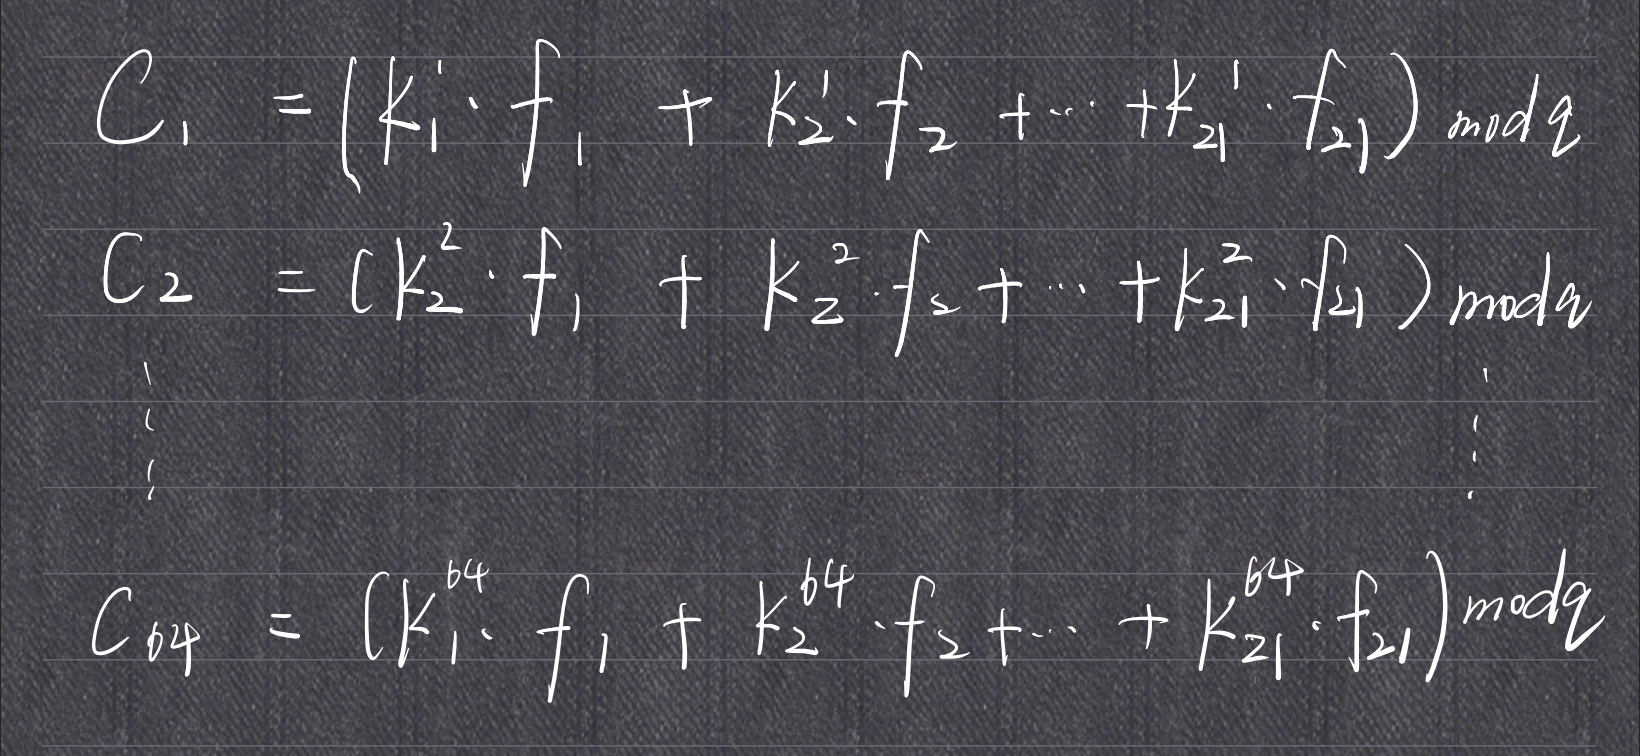 C₁ = (k₁¹ · f₁ + k₂¹ · f₂ + ⋯ + k₂₁¹ · f₂₁) mod q
C₂ = (k₂² · f₁ + k₂² · f₂ + ⋯ + k₂₁² · f₂₁) mod q
⋮ ⋮
C₆₄ = (k₁⁶⁴ · f₁ + k₂⁶⁴ · f₂ + ⋯ + k₂₁⁶⁴ · f₂₁) mod q